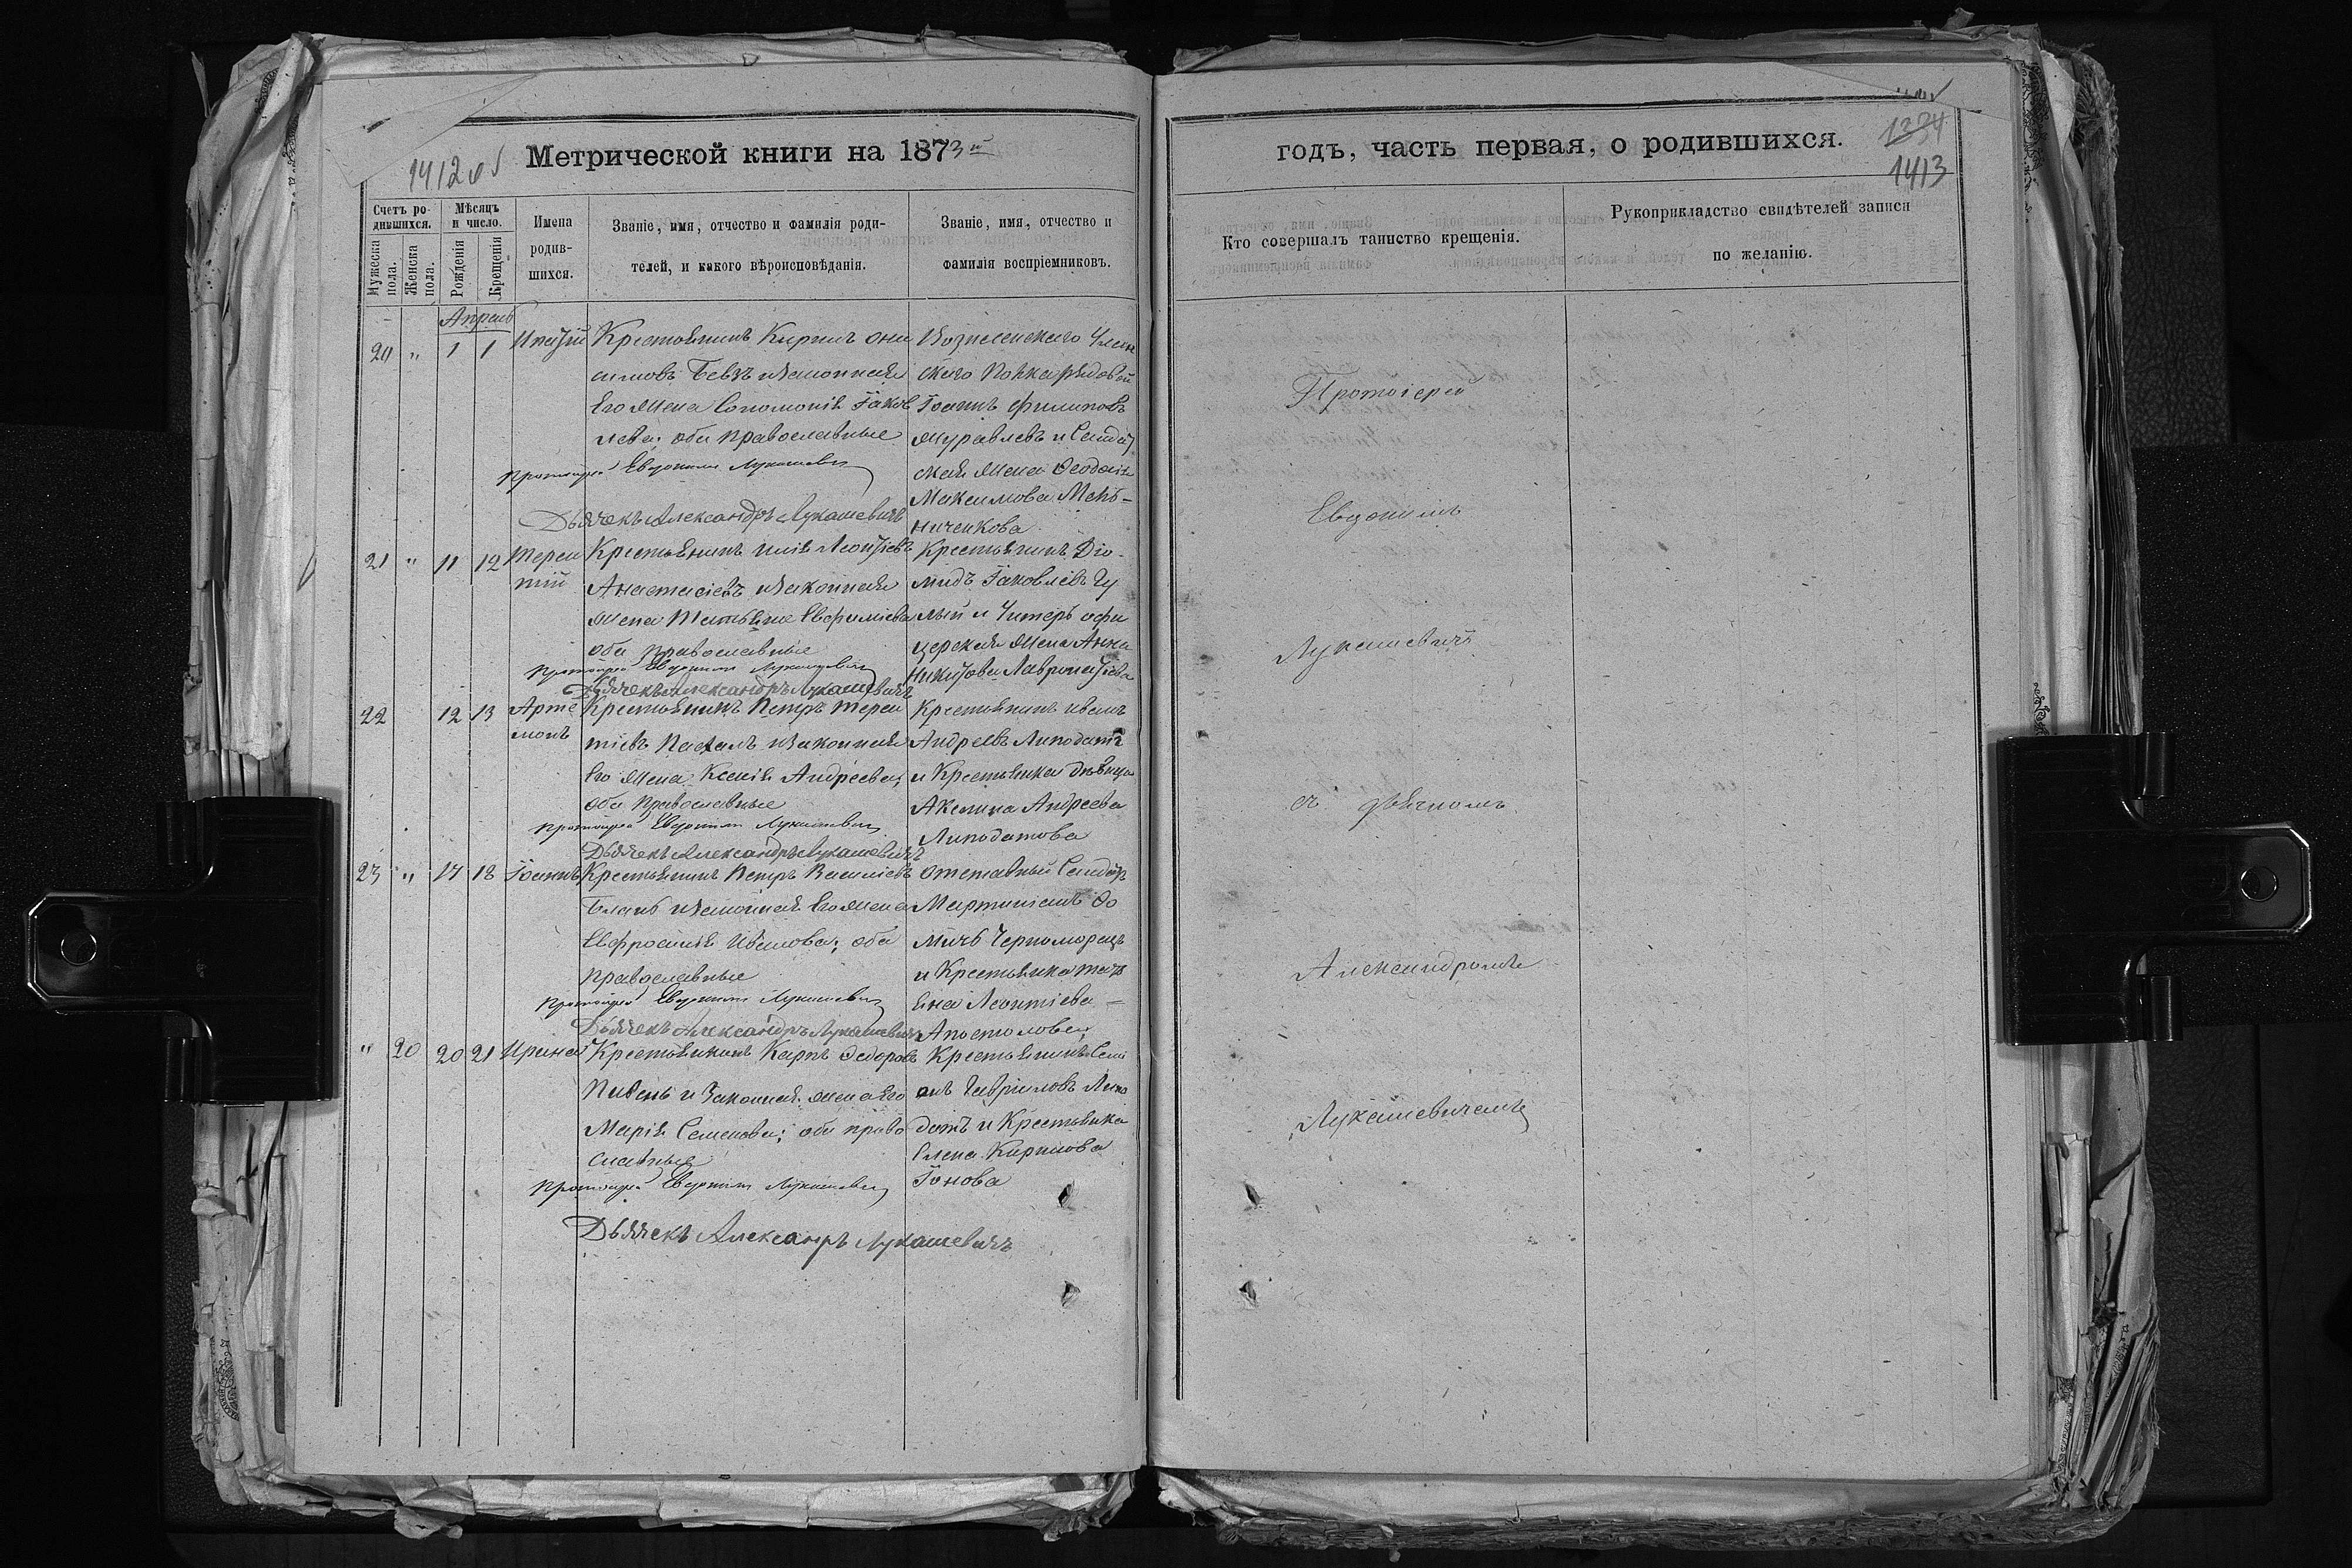 1412об
Метрической книги на 1873й
Счетъ родившихся.
Мужеска пола.
Женска пола.
Мѣсяцъ и число.
Рожденія
Крещенія
Имена родившихся.
Званіе, имя, отчество и фамилія родителей, и какого вѣроисповѣданія.
Званіе, имя, отчество и фамилія воспріемниковъ.
Апрель
20 " 1 1 Ипатій
Крестьянинъ Кирилъ Они
симовъ Бевзъ и законная
Его жена Соломонія Іаков
лева; оба православные
Протоіерей Евфимій Лукашевичъ
Дьячекъ Александръ Лукашевичъ
Вознесенскаго Улан
скаго Полка рядовой
Іоаннъ Филиповъ
Журавлевъ и Солдат
ская жена Феодосія
Максимова Мель-
ниченкова
21 " 11 12 Терен
тій
Крестьянинъ Илія Леонтіевъ
Анастасіевъ и законная
жена Татьяна Евфиміева
оба православные
Протоіерей Евфимій Лукашевичъ
Дьячекъ Александръ Лукашевичъ
Крестьянинъ Діо-
мидъ Іаковлевъ
и Унтеръ офи
церская жена Анна
Никитова
22 12 13 Арте
монъ
Крестьянинъ Петръ Терен
тіевъ и законная
Его жена Ксенія Андреева;
оба православные
Протоіерей Евфимій Лукашевичъ
Дьячекъ Александръ Лукашевичъ
Крестьянинъ Иванъ
Андреевъ Липодатъ
и Крестьянка дѣвица
Акелина Андреева
Липодатова
23 " 17 18 Іоаннъ
Крестьянинъ Петръ Василіевъ
и законная Его жена
Евфросинія Иванова; оба
православные
Протоіерей Евфимій Лукашевичъ
Дьячекъ Александръ Лукашевичъ
Отставный Солдатъ
Мартиніанъ Фо
мичъ Черноморецъ
и Крестьянка Тать
яна Леонтіева -
Апостолова
" 20 20 21 Ирина
Крестьянинъ Карпъ Федоровъ
Пивень и законная жена Его
Марія Семенова; оба право
славные
Протоіерей Евфимій Лукашевичъ
Дьячекъ Александръ Лукашевичъ
Крестьянинъ Сим
онъ Гавриловъ Липо
датъ и Крестьянка
Елена Кирилова
Іонова
годъ, часть первая, о родившихся.
1334
1413
Кто совершалъ таинство крещенія.
Рукоприкладство свидѣтелей записи по желанію.
Протоіерей
Евфимій
Лукашевичъ
съ дьячкомъ
Александромъ
Лукашевичемъ